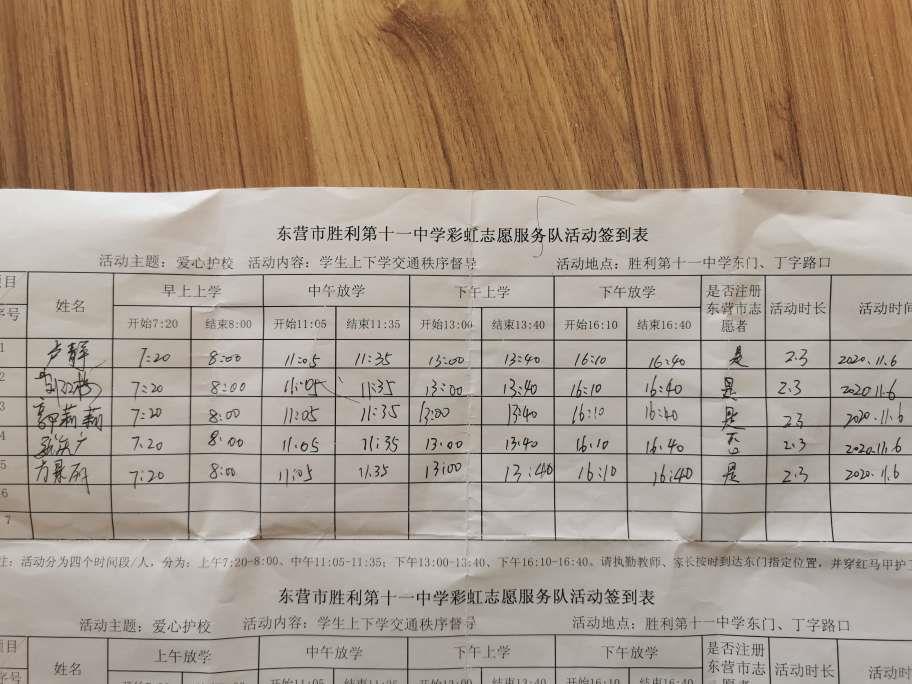 东营市胜利第十一中学彩虹志愿服务队活动签到表
活动主题：爱心护校 活动内容：学生上下学交通秩序督导 活动地点：胜利第十一中学东门、丁字路口
项目 姓名 早上上学 中午放学 下午上学 下午放学 是否注册东营市志愿者 活动时长 活动时间
序号 开始7:20 结束8:00 开始11:05 结束11:35 开始13:00 结束13:40 开始16:10 结束16:40
1 卢静 7:20 8:00 11:05 11:35 13:00 13:40 16:10 16:40 是 2.3 2020.11.6
2 7:20 8:00 11:05 11:35 13:00 13:40 16:10 16:40 是 2.3 2020.11.6
3 郭莉莉 7:20 8:00 11:05 11:35 13:00 13:40 16:10 16:40 是 2.3 2020.11.6
4 7.20 8:00 11:05 11:35 13:00 13:40 16:10 16:40 否 2.3 2020.11.6
5 7:20 8:00 11:05 11.35 13:00 13:40 16:10 16:40 是 2.3 2020.11.6
6
7
注：活动分为四个时间段/人，分为：上午7:20-8:00、中午11:05-11:35；下午13:00-13:40、下午16:10-16:40。请执勤教师、家长按时到达东门指定位置，并穿红马甲护
东营市胜利第十一中学彩虹志愿服务队活动签到表
活动主题：爱心护校 活动内容：学生上下学交通秩序督导 活动地点：胜利第十一中学东门、丁字路口
项目 姓名 上午放学 中午放学 下午上学 下午放学 是否注册东营市志 活动时长 活动时
序号 开始7:20 结束8:00 开始11:05 结束11:35 开始13:00 结束13:40 开始16:10 结束16:40